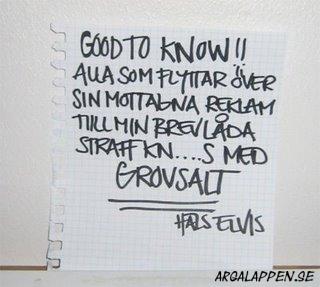 GOOD TO KNOW!!
ALLA SOM FLYTTAR ÖVER
SIN MOTTAGNA REKLAM
TILL MIN BREVLÅDA
STRAFF KN....S MED
GROVSALT
HÄLS ELVIS
ARGALAPPEN.SE